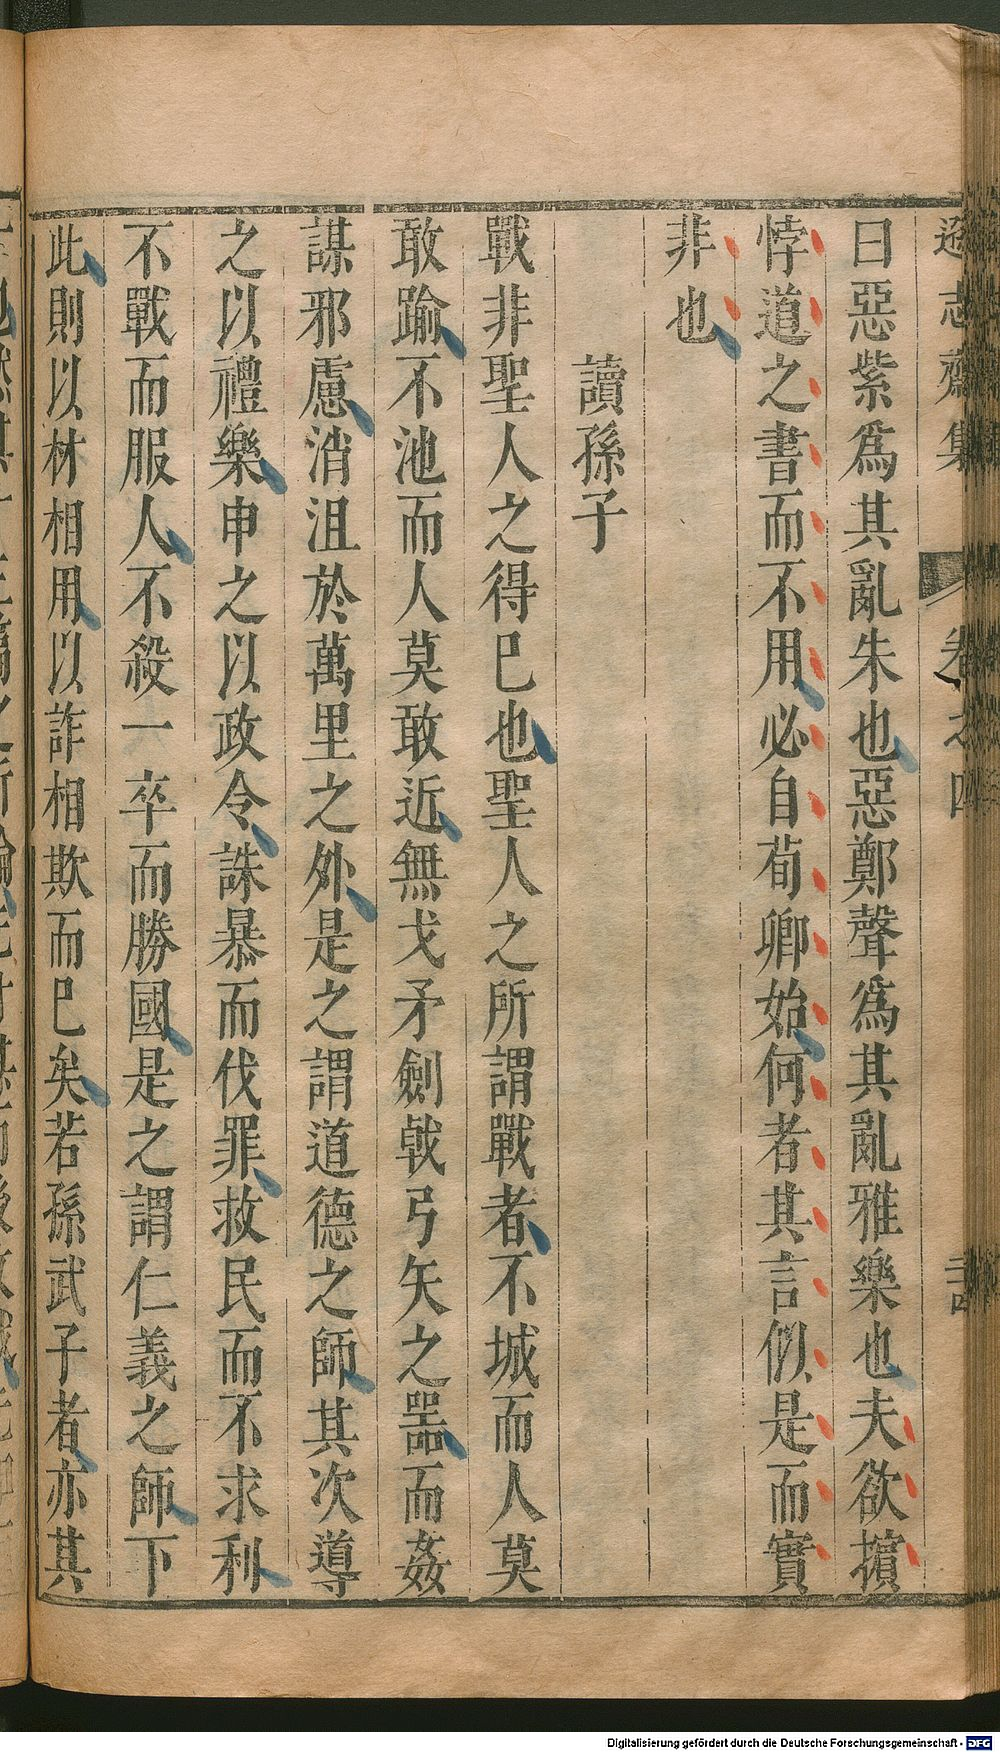 遜志齋集 卷之四 二十四
曰惡紫爲其亂朱也惡鄭聲爲其亂雅樂也夫欲擯
悖道之書而不用必自荀卿始何者其言似是而實
非也
讀孫子
戰非聖人之得已也聖人之所謂戰者不城而人莫
敢踰不池而人莫敢近無戈矛劍戟弓矢之器而姦
謀邪慮消沮於萬里之外是之謂道德之師其次導
之以禮樂申之以政令誅暴而伐罪救民而不求利
不戰而服人不殺一卒而勝國是之謂仁義之師下
此則以材相用以詐相欺而已矣若孫武子者亦其
Digitalisierung gefördert durch die Deutsche Forschungsgemeinschaft - DFG